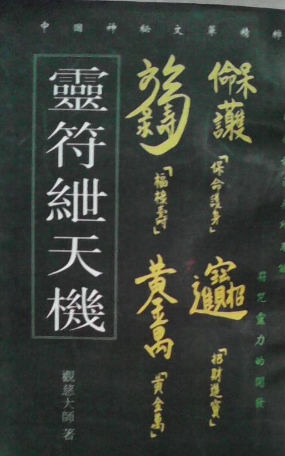 中國神秘文萃精
靈符紲天機
觀慈大師著
「保命護身」
「福祿壽」
「招財進寶」
黃金萬
「黃金萬」
符咒靈力的開發